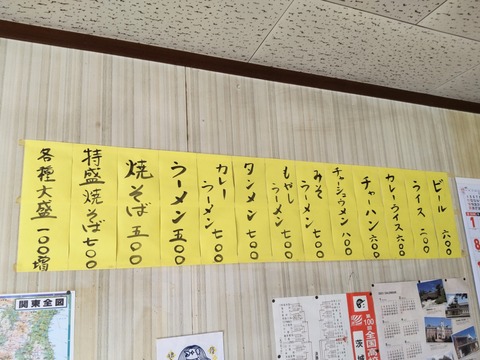 ビール 六〇〇
ライス 二〇〇
カレーライス 六〇〇
チャーハン 六〇〇
チャーシュウメン 八〇〇
みそラーメン 七〇〇
もやしラーメン 七〇〇
タンメン 七〇〇
カレーラーメン 七〇〇
ラーメン 五〇〇
焼そば 五〇〇
特盛焼そば 七〇〇
各種大盛 一〇〇増
関東全図
第100回
全国高
茨城